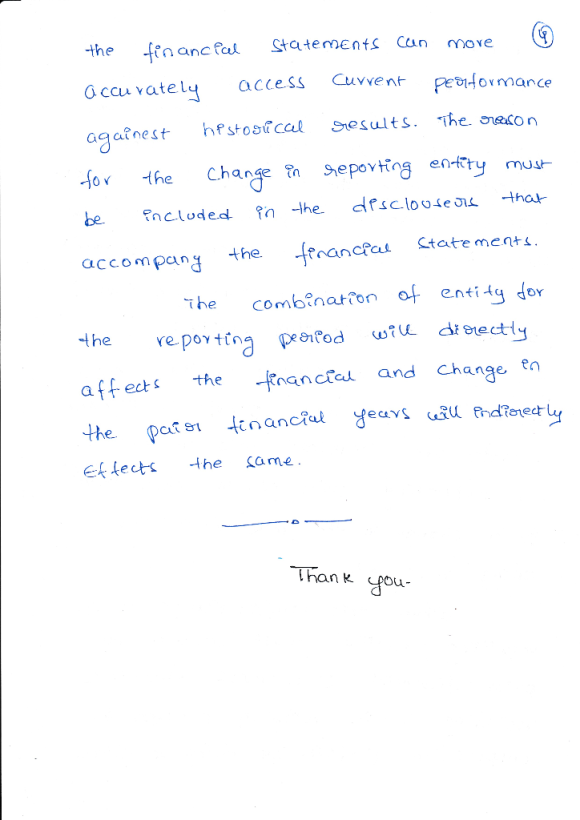 the financial statements can more
9
accurately access current performance
againest historical results. The reason
for the change in reporting entity must
be included in the disclousers that
accompany the financial statements.
The combination of entity for
the reporting period will directly
affects the financial and change in
the paior financial years will indirectly
Effects the same.
Thank you-